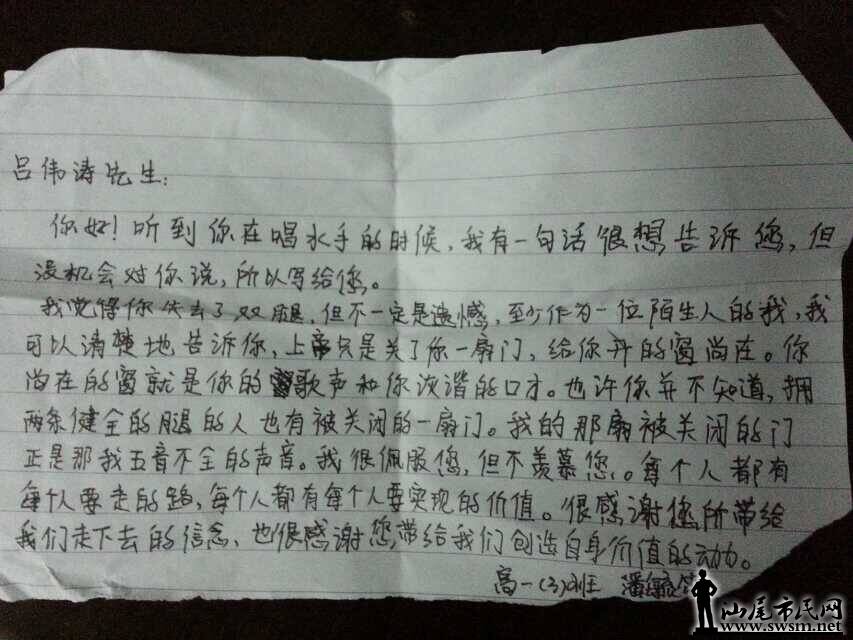 吕伟涛先生:
你好!听到你在唱水手的时候,我有一句话很想告诉您,但
没机会对你说,所以写给您。
我觉得你失去了双腿,但不一定是遗憾,至少作为一位陌生人的我,我
可以清楚地告诉你,上帝只是关了你一扇门,给你开的窗尚在。你
尚在的窗就是你的歌声和你诙谐的口才。也许你并不知道,拥
两条健全的腿的人也有被关闭的一扇门。我的那扇被关闭的门
正是那我五音不全的声音。我很佩服您,但不羡慕您。每个人都有
每个人要走的路,每个人都有每个人要实现的价值。很感谢您所带给
我们走下去的信念、也很感谢您带给我们创造自身价值的动力。
高一(3)班 潘
汕尾市民网
www.swsm.net